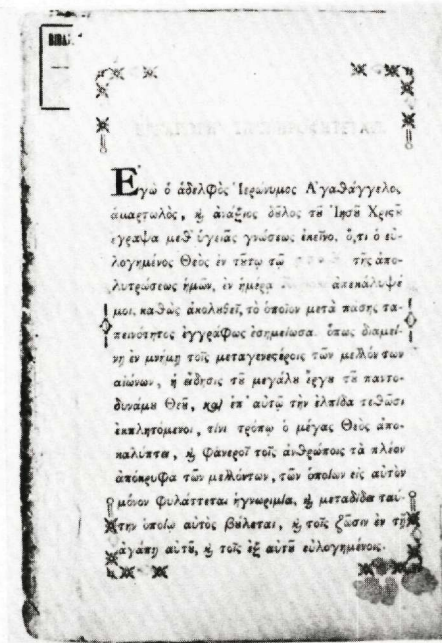 ΒΙΒΛ
Ἐγὼ ὁ ἀδελφὸς Ἱερώνυμος Ἀγαθάγγελος
ἁμαρτωλὸς, ϗ ἀνάξιος δȣ̃λος τȣ̃ Ἰησȣ̃ Χριϛȣ̃
ἔγραψα μεθ' ὑγειᾶς γνώσεως ἐκεῖνο, ὅ,τι ὁ εὐ-
λογημένος Θεὸς ἐν τȣ́τῳ τῷ τῆς ἀπο-
λυτρώσεως ἡμῶν, ἐν ἡμέρᾳ ἀπεκάλυψέ
μοι, καθὼς ἀκολυθεῖ, τὸ ὁποῖον μετὰ πάσης τα-
πεινότητος ἐγγράφως ἐσημείωσα. ὅπως διαμεί-
νῃ ἐν μνήμῃ τοῖς μεταγενεϛέροις τῶν μελλόντων
αἰώνων, ἡ εἴδησις τȣ̃ μεγάλȣ ἔργȣ τȣ̃ παντο-
δυνάμȣ Θεȣ̃, ϗ ἐπ' αὐτῷ τὴν ἐλπίδα τεθῶσι
ἐκπληττόμενοι, τίνι τρόπῳ ὁ μέγας Θεὸς ἀπο-
καλύπτει, ϗ φανεροῖ τοῖς ἀνθρώποις τὰ πλέον
ἀπόκρυφα τῶν μελλόντων, τῶν ὁποίων εἰς αὐτὸν
μόνον φυλάττεται ἡ γνωριμία, ϗ μεταδίδει ταύ-
την ὁποίῳ αὐτὸς βȣ́λεται, ϗ τοῖς ζῶσιν ἐν τῇ
ἀγάπῃ αὐτȣ̃, ϗ τοῖς ἐξ αὐτȣ̃ εὐλογημένοις.